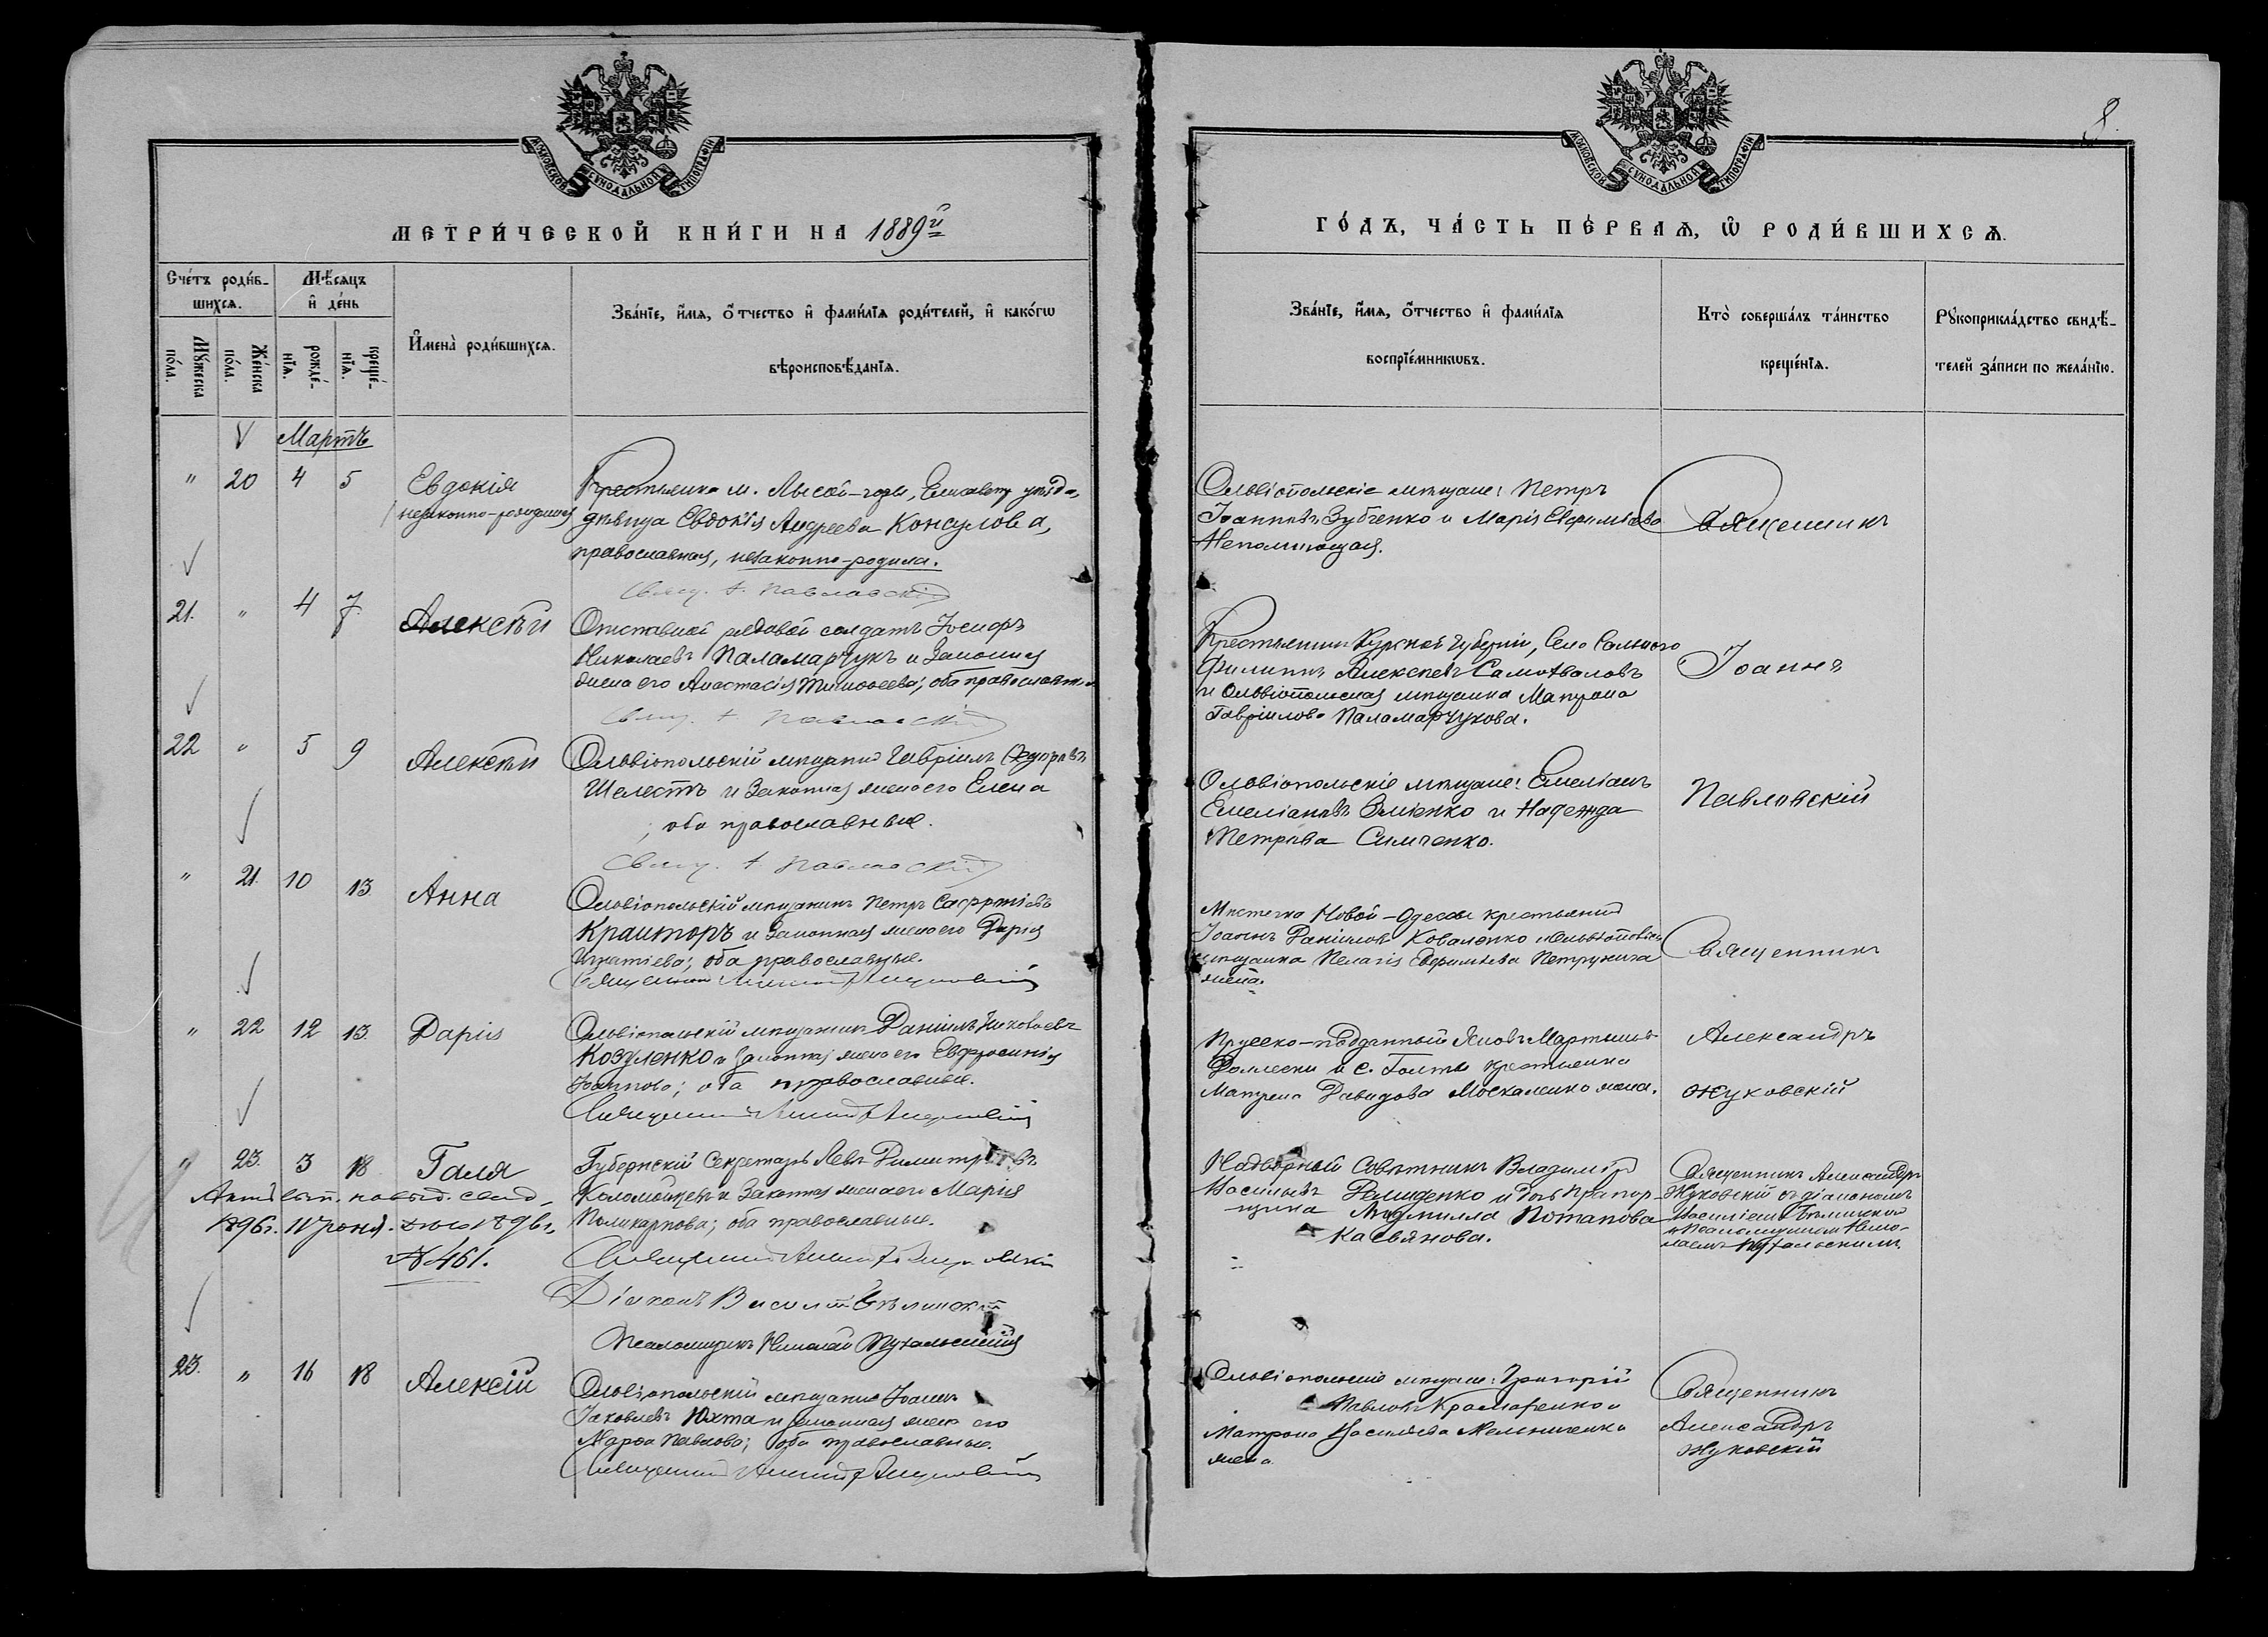 МОСКОВСКОЙ СѴНОДАЛЬНОЙ ТИПОГРАФІИ
МЕТРИ́ЧЕСКОЙ КНИ́ГИ НА 1889й
Сче́тъ роди́в-
шихсѧ.
Мѣ́сѧцъ
и҆ де́нь
Мꙋ́жеска
по́ла.
Же́нска
по́ла.
рожде́-
нїѧ.
креще́-
нїѧ.
И҆мена̀ роди́вшихсѧ.
Зва́нїе, и҆́мѧ, ѻ҆́тчество и҆ фами́лїѧ роди́телей, и҆ како́гѡ
вѣроисповѣ́данїѧ.
Мартъ
" 20 4 5 Евдокія
незаконно-рожденная
Крестьянка м. Лысой-горы, Елисавет. уѣзда,
дѣвица Евдокія Андреева Консулова,
православная, незаконно-родила.
Свящ. І. Павловскій
21. " 4 7. Алексѣй
Отставной рядовой солдатъ Іосифъ
Николаевъ Паламарчукъ и законная
жена его Анастасія Тимофеева; оба православные
Свящ. І. Павловскій
22 " 5 9 Алексѣй
Ольвіопольскій мѣщанинъ Гавріилъ
Шелестъ и законная жена его Елена
; оба православные.
Свящ. І. Павловскій
" 21. 10 13. Анна
Ольвіопольскій мѣщанинъ Петръ
Крамторъ и законная жена его Дарія
Игнатіева; оба православные.
Священникъ
" 22 12 13. Дарія
Ольвіопольскій мѣщанинъ Даніилъ
Козуленко и законная жена его Евфросинія
Іоаннова; оба православные.
Священникъ
" 23. 3 18 Галя
Губернскій Секретарь Левъ Димитріевъ
Коломойцевъ и законная жена его Марія
Поликарпова; оба православные.
1896г. 1896г.
№ 461.
Священникъ
Діаконъ Василій Бѣлинскій
Псаломщикъ Николай
23. " 16 18 Алексій
Ольвіопольскій мѣщанинъ Іоаннъ
Іаковлевъ Юхта и законная жена его
Марѳа Павлова; оба православные.
Священникъ
8.
МОСКОВСКОЙ СѴНОДАЛЬНОЙ ТИПОГРАФІИ
ГО́ДЪ, ЧА́СТЬ ПЕ́РВАѦ, Ѡ҆ РОДИ́ВШИХСѦ.
Зва́нїе, и҆́мѧ, ѻ҆́тчество и҆ фами́лїѧ
воспрїе́мникѡвъ.
Кто̀ соверша́лъ та́инство
креще́нїѧ.
Рꙋкоприкла́дство свидѣ́-
телей за́писи по жела́нїю.
Ольвіопольскіе мѣщане: Петръ
Іоанновъ Зубченко и Марія Евфиміева
Непомнющая.
Священникъ
Крестьянинъ Курской губерніи, село
Филиппъ Алексѣевъ Самохваловъ
и Ольвіопольская мѣщанка Матрона
Гавріилова Паламарчукова.
Іоаннъ
Ольвіопольскіе мѣщане: Емеліанъ
Емеліановъ и Надежда
Петрова Симченко.
Павловскій
Мѣстечка Новой-Одессы крестьянинъ
Іоаннъ Даніиловъ Коваленко и Ольвіопольск.
мѣщанка Пелагія Евфиміева
жена.
Священникъ
Прусско-подданный Яковъ Мартыновъ
и с. Голты крестьянка
Матрена Давидова Москаленко жена.
Александръ
Жуковскій
Надворный Совѣтникъ Владиміръ
Васильевъ и дочь прапор-
щика Людмилла Потапова
Касьянова.
Священникъ Александръ
Жуковскій съ діакономъ
Василіемъ Бѣлинскимъ
и Псаломщикомъ Нико-
лаемъ
Ольвіопольскіе мѣщане: Григорій
Павловъ Крамаренко и
Матрона Васильева Мельниченко
жена.
Священникъ
Александръ
Жуковскій